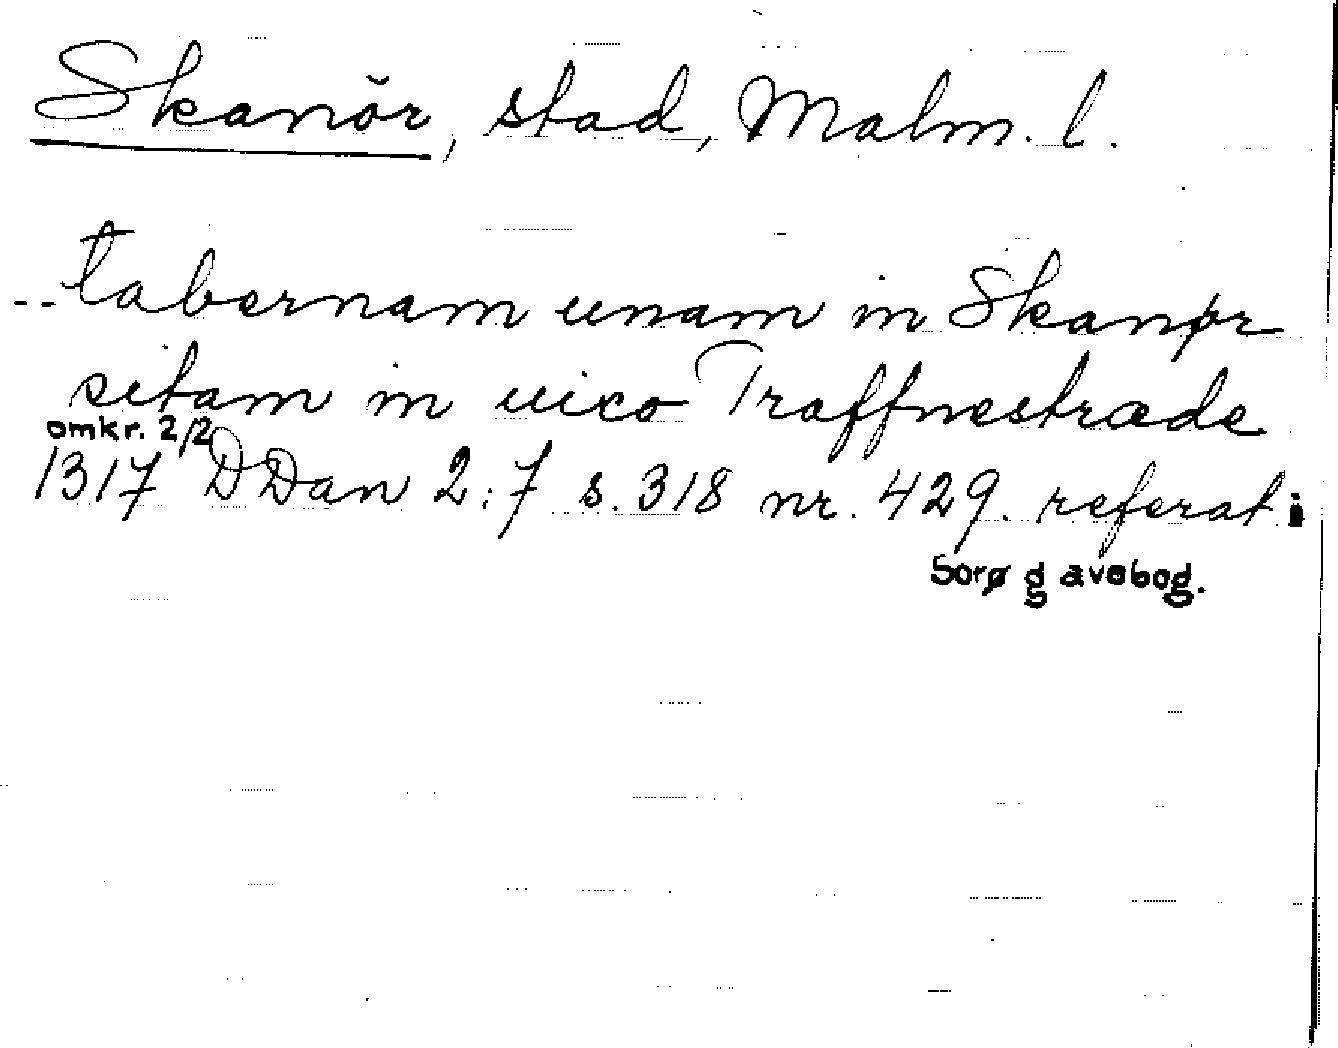 Skanör, stad, Malm. l.
-- tabernam unam in Skanør
sitam in uico Traffnestræde
omkr. 2/2
1317 DDan 2:7 s. 318 nr. 429. referat i
Sorø gavebog.